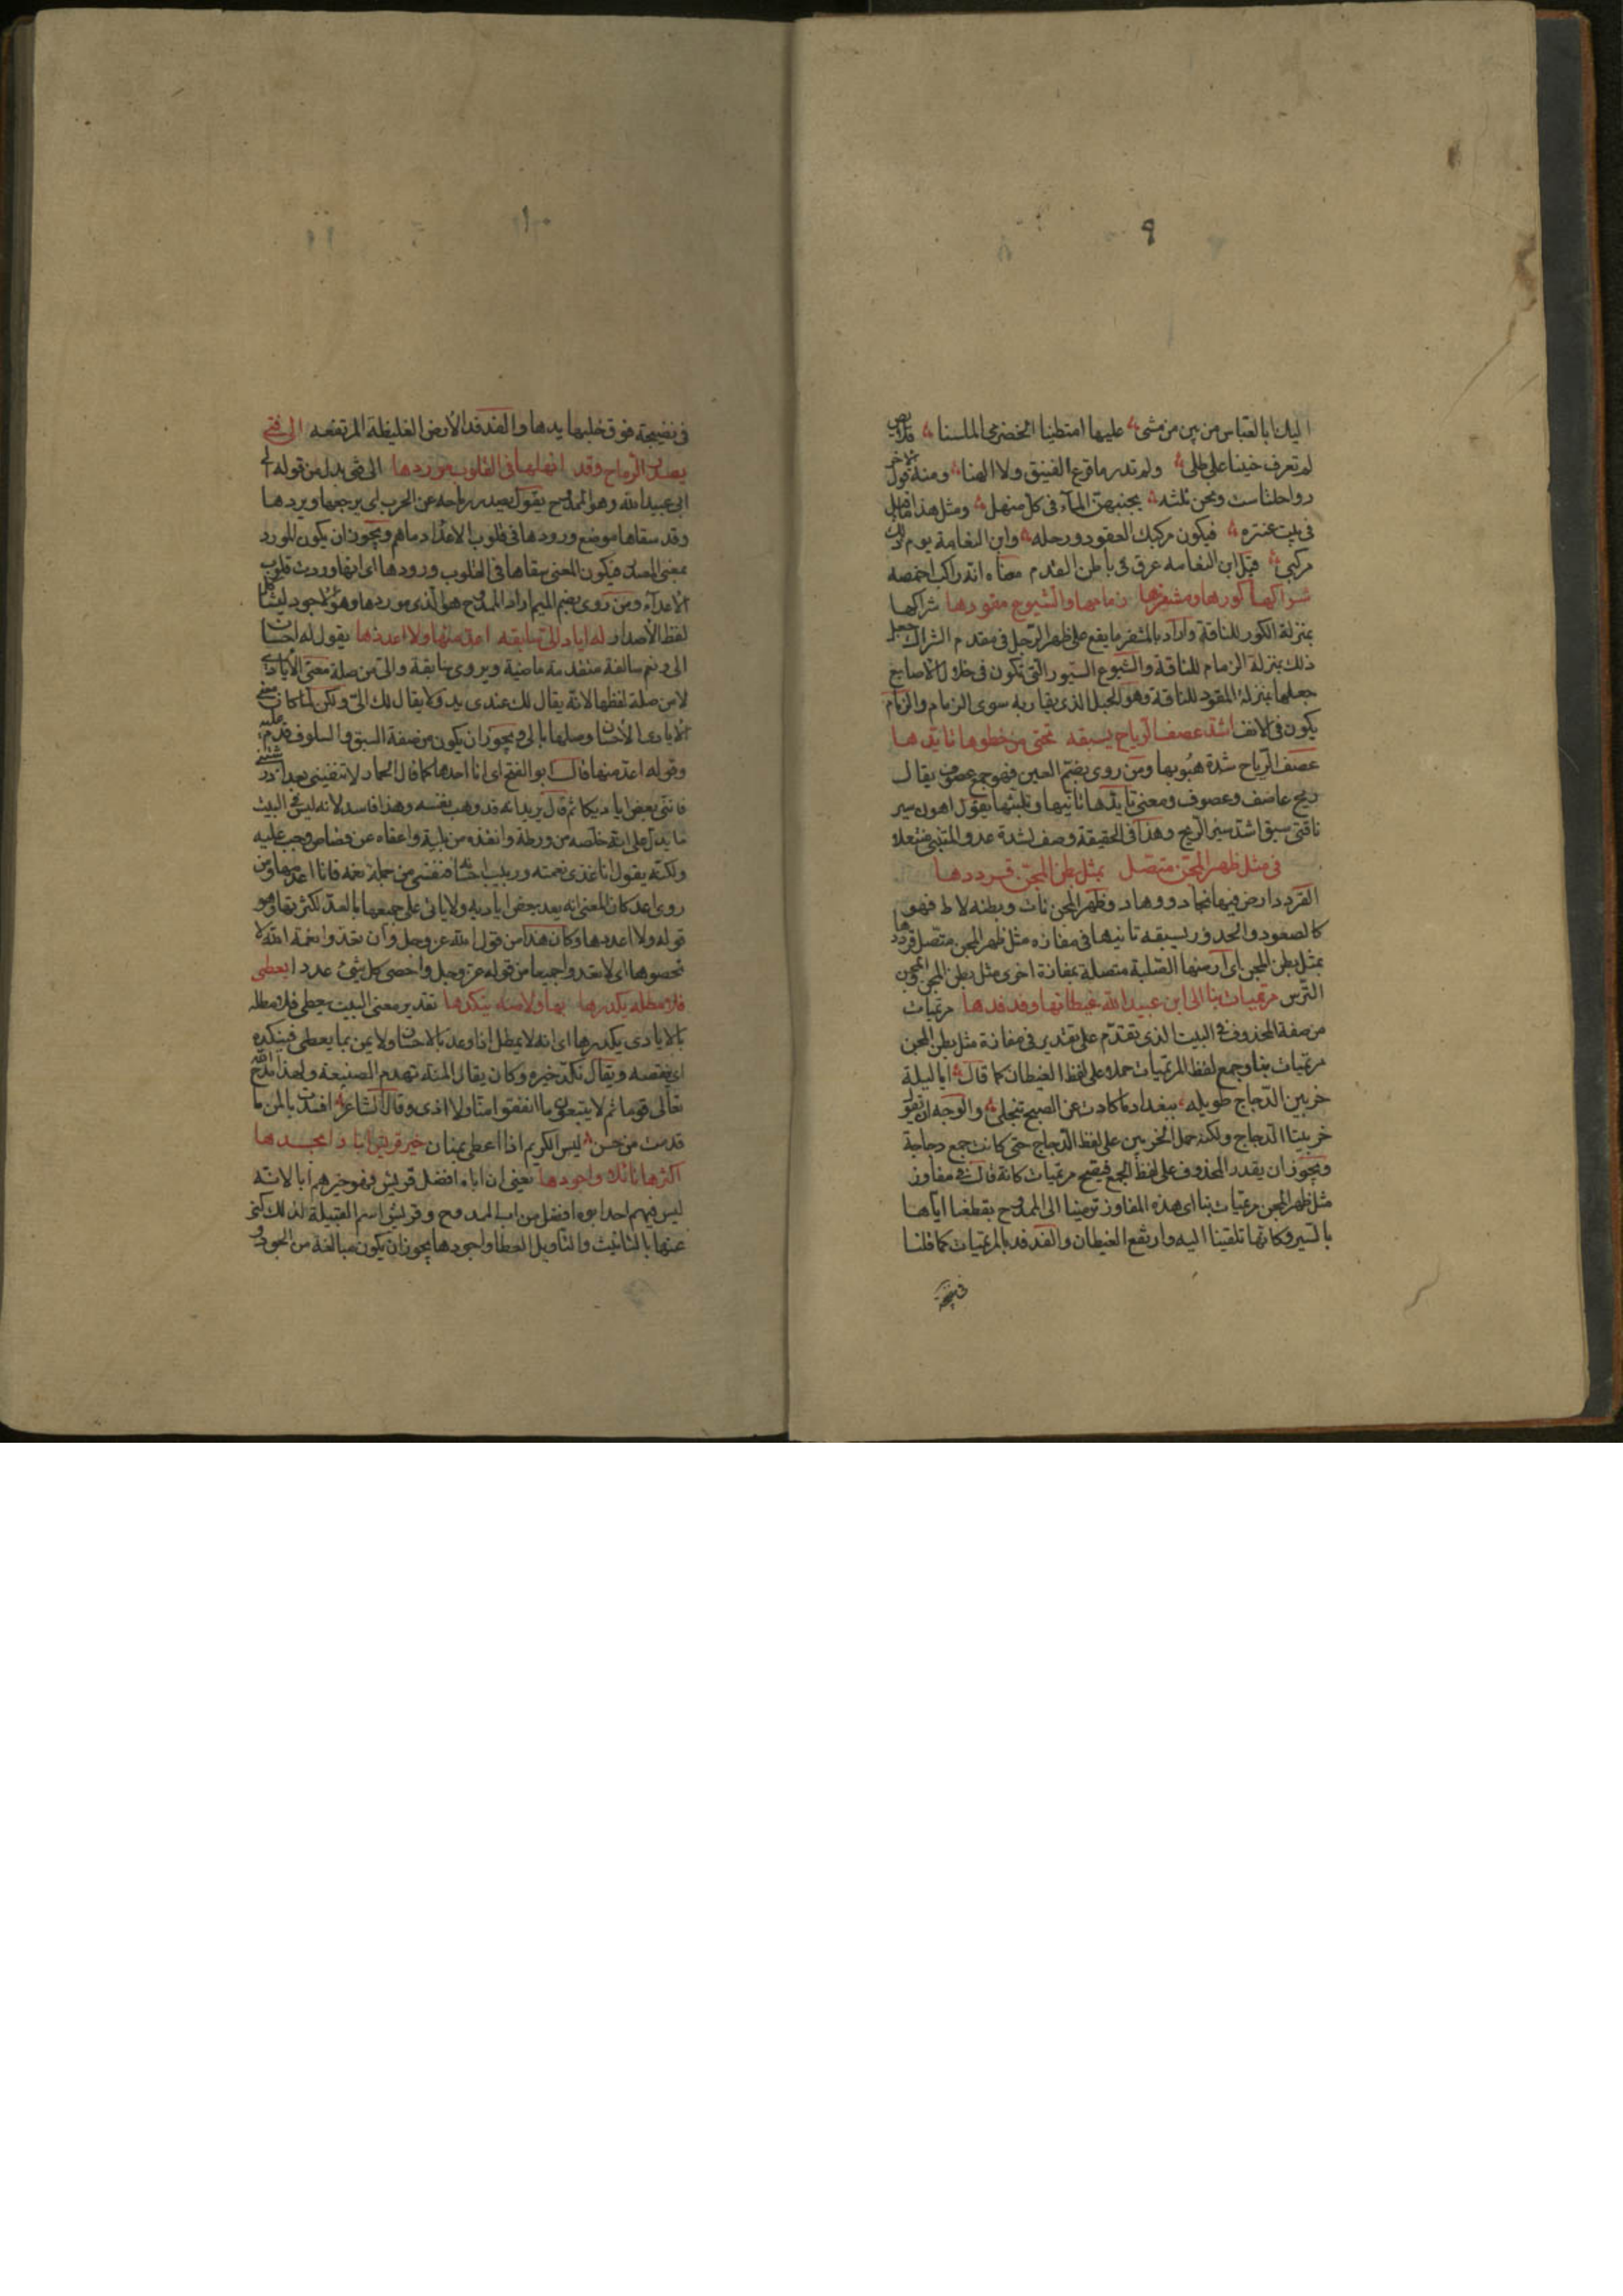 ٩
اليك ابا العباس من بين من مشى عليها امتطينا الحضرمى الملسنا قلايص
لم تعرف حنينا على طلى ولم تدر ما قرع الفنيق ولا الهنا ومنه قول الاخر
رواحلنا ست ونحن ثلثه يجنبهن الماء فى كل منهل ومثل هذا ما قيل
فى بيت عنتره فيكون مركبك القعود ورحله وابن النعامة يوم ذلك
مركبى قيل ابن النعامه عرق فى باطن القدم معناه انه راكب اخمصه
شراكها كورها ومشفرها زمامها والشسوع مقودها شراكها
بمنزلة الكور للناقة واراد بالمشفر ما يقع على ظهر الرجل فى مقدم الشراك جعل
ذلك بمنزلة الزمام للناقة والشسوع السيور التى تكون فى خلال الاصابع
جعلها بمنزلة المقود للناقة وهو الحبل الذى يقاد به سوى الزمام والزمام
يكون فى الانف اشد عصف الرياح يسبقه تحتى من خطوها تايدها
عصف الرياح شدة هبوبها ومن روى بضم العين فهو جمع عصوف يقال
ريح عاصف وعصوف ومعنى تايدها تانيها وتلبثها يقول اهون سير
ناقتى سبق اشد سير الريح وهذا فى الحقيقة وصف لشدة عدو المتنبى منتعلا
فى مثل ظهر المجن متصل بمثل بطن المجن قرددها
القردد ارض فيها نجاد ووهاد وظهر المجن نات وبطنه لاط فهو
كالصعود والحدور يسبقه تانيها فى مفازه مثل ظهر المجن متصل قرددها
بمثل بطن المجن اى ارضها الصلبة متصلة بمفازة اخرى مثل بطن المجن
الترس مرتميات بنا الى ابن عبيد الله غيطانها وفدفدها مرتميات
من صفة المحذوف فى البيت الذى تقدم على تقدير فى مفازة مثل بطن المجن
مرتميات بنا وجمع لفظ المرتميات حملا على لفظ الغيطان كما قال ايا ليلة
خربين الدجاج طويله ببغداد ما كادت عن الصبح تنجلى والوجه ان يقول
خربيتا الدجاج ولكنه حمل الخربين على لفظ الدجاج حتى كانت جمع دجاجة
ويجوز ان يقدر المحذوف على لفظ الجمع فيصح مرتميات كانه قال فى مفاوز
مثل ظهر المجن مرتميات بنا اى هذه المفاوز ترمينا الى الممدوح بقطعنا اياها
بالسير وكانها تلقينا اليه وارتفع الغيطان والفدفد بالمرتميات كما قلنا
فى نضيجة
١٠
فى نضيجة فوق خلبها يدها والفدفد الارض الغليظة المرتفعه الى فتى
يصدر الرماح وقد انهلها فى القلوب موردها الى فتى بدل من قوله الى
ابى عبيد الله وهو الممدوح يقول يصدر رماحه عن الحرب اى يرجعها ويردها
وقد سقاها موضع ورودها فى قلوب الاعداء دماهم ويجوز ان يكون المورد
بمعنى المصدر فيكون المعنى سقاها فى القلوب ورودها اى انها وردت قلوب
الاعداء ومن روى بضم الميم اراد الممدوح هو الذى موردها وهو الاجود ليشاكل
لفظ الاصدار له اياد الى سابقه اعد منها ولا اعددها يقول له احسان
الى ونعم سالفة متقدمة ماضية ويروى سابقة والى من صلة معنى الايادى
لا من صلة لفظها لانه يقال لك عندى يد ولا يقال لك الى ولكن لما كان معنى
الايادى الاحسان وصلها بالى ويجوز ان يكون من صفة السبق والسلوف قدم عليه
وقوله اعد منها قال ابو الفتح اى انا احدها كما قال الحماد لا تنتفينى بعد ان
فاننى بعض اياديكا ثم قال يريد انه قد وهب نفسه وهذا فاسد لانه ليس فى البيت
ما يدل على انه خلصه من ورطة وانقذه من بلية واعفاه عن قصاص وجب عليه
ولكنه يقول انا غذى نعمته وربيب احسانه فنفسى من جملة نعمه فانا اعد منها ومن
روى اعد كان المعنى انه يعد بعض اياديه ولا ياتى على جميعها بالعد لكثرتها وهو
قوله ولا اعددها وكان هذا من قول الله عز وجل وان تعدوا نعمة الله لا
تحصوها اى لا تعدوا جميعا من قوله عز وجل واحصى كل شئ عددا يعطى
فلا مطله يكدرها بها ولا منه ينكدها تقدير معنى البيت يعطى فلا مطله
بالايادى يكدرها اى انه لا يمطل اذا وعد بالاحسان ولا يمن بما يعطى فينكده
اى ينقصه ويقال نكد خيره وكان يقال المنة تهدم الصنيعة ولهذا مدح الله
تعالى قوما ثم لا يتبعون ما انفقوا منا ولا اذى وقال الشاعر افسدت بالمن ما
قدمت من حسن ليس الكريم اذا اعطى بمنان خير قريش ابا وامجدها
اكثرها نائلا واجودها يعنى ان اباه افضل قريش فهو خيرهم ابا لانه
ليس فيهم احد ابوه افضل من اب الممدوح وقريش اسم القبيلة لذلك كنى
عنها بالتانيث والنايل العطا واجودها يجوز ان يكون مبالغة من الجود و